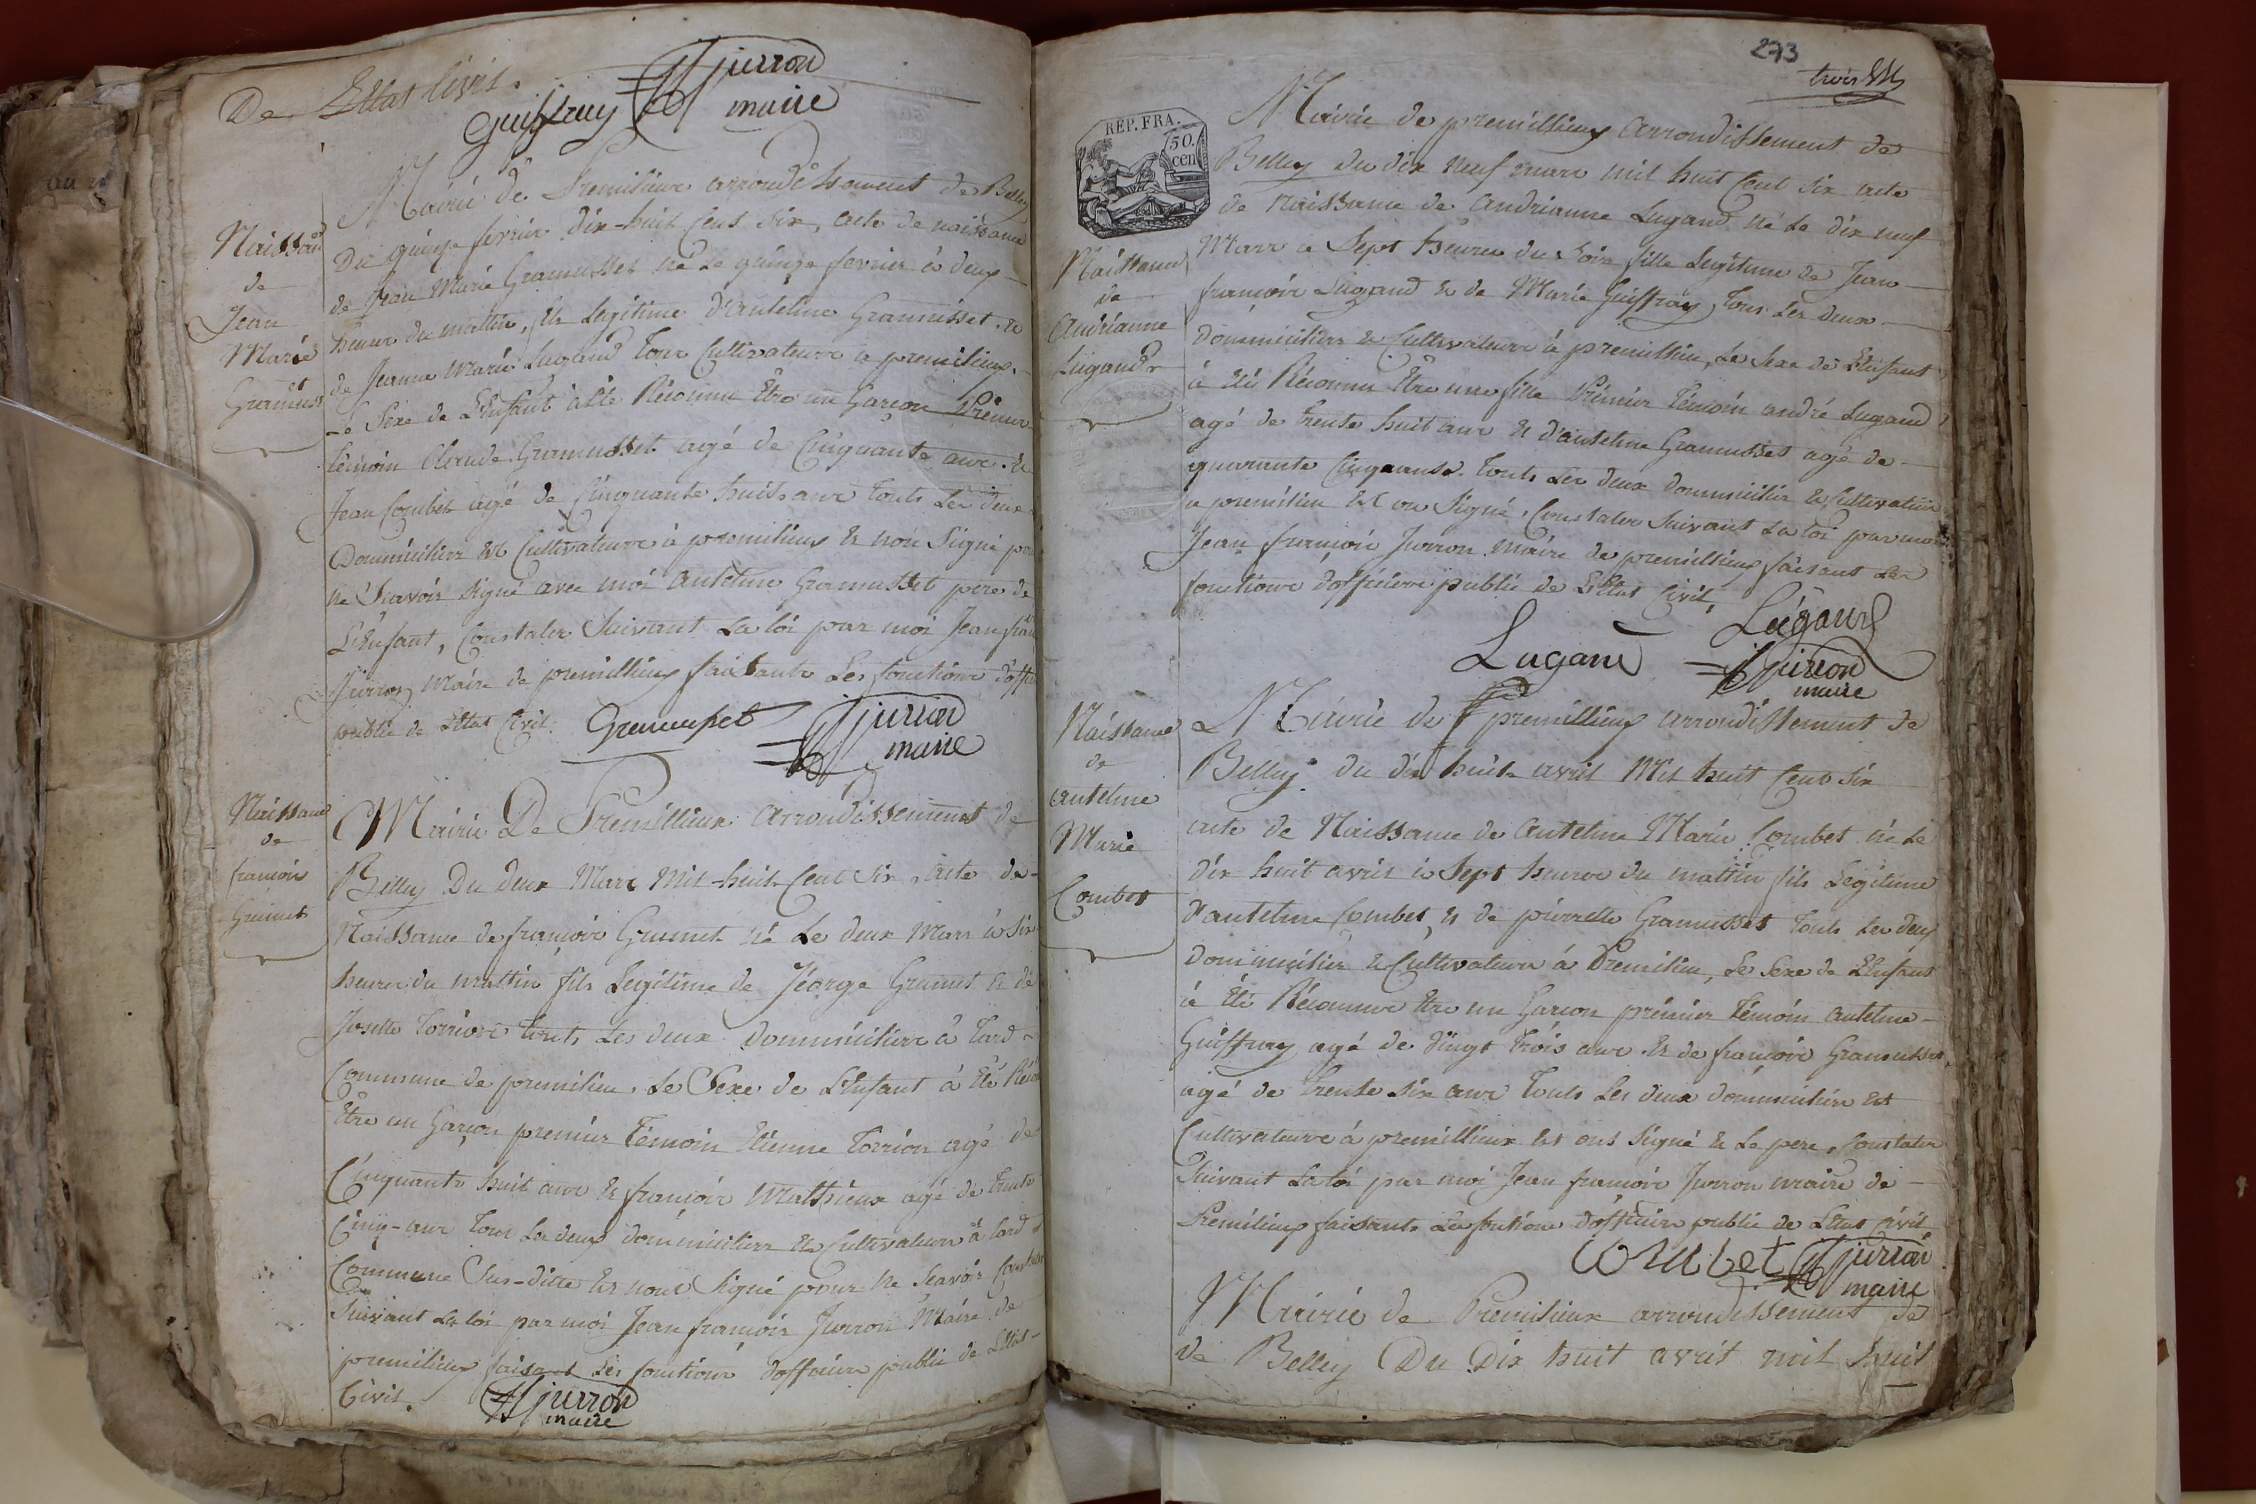 De Lettat Civil.
Guiffray JFJurron
maire
Naissan
de
Jean
Marie
Gramusst
Mairie de Premilieux arrondissement de Belley
Du quinze fevrier dix-huit Cent Six, acte de naissance
de Jean Marie Gramusset né Le quinze fevrier à deux
heures du mattin, fils Legitime d'anteline Gramusset, &
de Jeanne Marie Lugand Tous Cultivateurs a premilieux.
Le Sexe de L'Enfant à été Réconnu Être un Garcon Prémier
témoin Claude Gramusset agé de Cinquante ans. &
Jean Combet agé de Cinquante huit ans touts Les deux
Domiciliers Et Cultivateurs à premilieux & non Signé pour
ne Scavoir signé avec moi anteline Gramusset pere de
L'Enfant, Constater Suivant La loi par moi Jean fran
Jurron, Maire de premillieux faisants Les fonctions d'offi
public de L'Etat Civil. Gramuset JFJurron
maire
Naissance
de
francois
Grumet
Mairie De Premillieux arrondissement de
Belley Du deux Mars Mil-huit Cent Six, acte de
Naissance de francois Grumet né Le deux Mars à Six
heures du mattin fils Legitime de Jéorge Grumet & de
Josette Torrion touts Les deux Domiciliers à Tard
Commune de premilieu. Le Sexe de L'Enfant à Eté Réco
Être un Garcon premier Témoin Etienne Torrion agé de
Cinquante huit ans & francois Mathieux agé de trente
Cinq-ans Tous Les deux domiciliers & Cultivateurs à tard
Commune Sus-ditte & nont Signé pour ne Scavoir Constater
Suivant La loi par moi Jean francois Jurron Maire de
premilieux faisant Les fonctions d'officier public de L'Etat
Civil. JFJurron
maire
273
trois
REP. FRA.
50.
cen
Naissance
de
Andrianne
Lugand
Mairie de premillieux arrondissement de
Belley du dix neuf mars mil huit Cent Six acte
de Naissance de Andrianne Lugand né Le dix neuf
Mars a Sept Heures du Soir fille Legitime de Jean
francois Lugand & de Marie Guiffray, Tous Les deux
domiciliers & Cultivateurs à premillieu, Le Sexe de L'Enfant
à Eté Réconnu Être une fille Prémier Témoin andré Lugand
agé de trente huit ans & d'anteline Gramusset agé de
quarante Cinq ans. Touts Les deux domicilier & Cultivateur
a premilieu Et on Signé. Constater Suivant La loi par moi
Jean francois Jurron Maire de premillieux faisant Les
fonctions d'officier public de L'Etat Civil,
Lugand
Lugand JFJurron
maire
Naissance
de
anteline
Marie
Combet
Mairie de premillieux arrondissement de
Belley. du dix huit avril Mil huit Cent Six
acte de Naissance de anteline Marie Combet né Le
dix huit avril à Sept heures du mattin fils Legitime
d'anteline Combet, & de pierrette Gramusset touts Les deux
domicilier & Cultivateurs à Premilieu, Le Sexe de L'Enfant
à Eté Réconnue Etre un Garcon prémier témoin anteline
Guiffray agé de Vingt trois ans & de francois Gramusset,
agé de trente six ans touts Les deux domiciliers Et
Cultivateurs à premillieux Et ont Signé & Le pere, Constater
Suivant La loi par moi Jean francois Jurron maire de
Premilieux faisants Les fontions d'officier public de L'etat Civil
Combet JFJurron
maire
Mairie de Premilieux arrondissement de
de Belley Du Dix huit avril mil huit